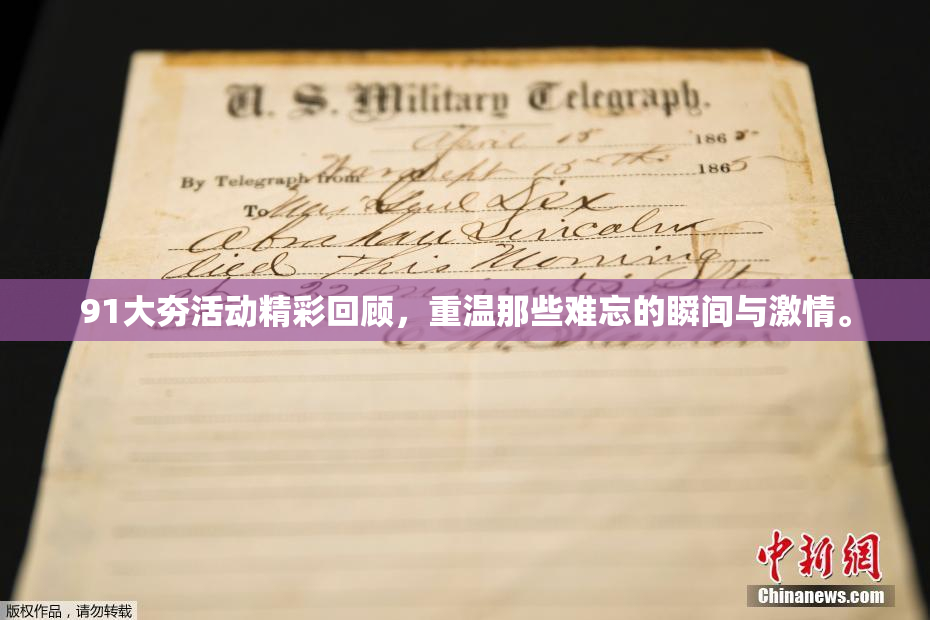 U. S. Military Telegraph.
April 15 1865
By Telegraph from War Dept 15th 1865
To Maj Genl Dix
Abraham Lincoln
died This Morning
at 22 minutes after
91大夯活动精彩回顾，重温那些难忘的瞬间与激情。
E. M. Stanton
中新网
Chinanews.com
版权作品，请勿转载